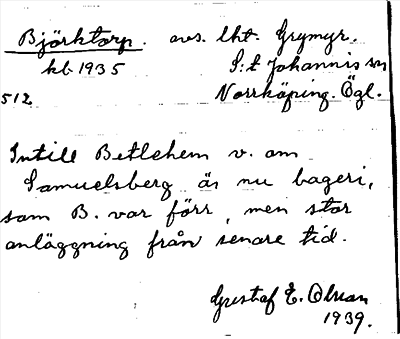 Björktorp. avs. lht. Grymyr.
kb 1935 S:t Johannis sn
512 Norrköping. Ögl.
Intill Betlehem v. om
Samuelsberg är nu bageri,
som B. var förr, men stor
anläggning från senare tid.
Gustaf E. Olsson
1939.